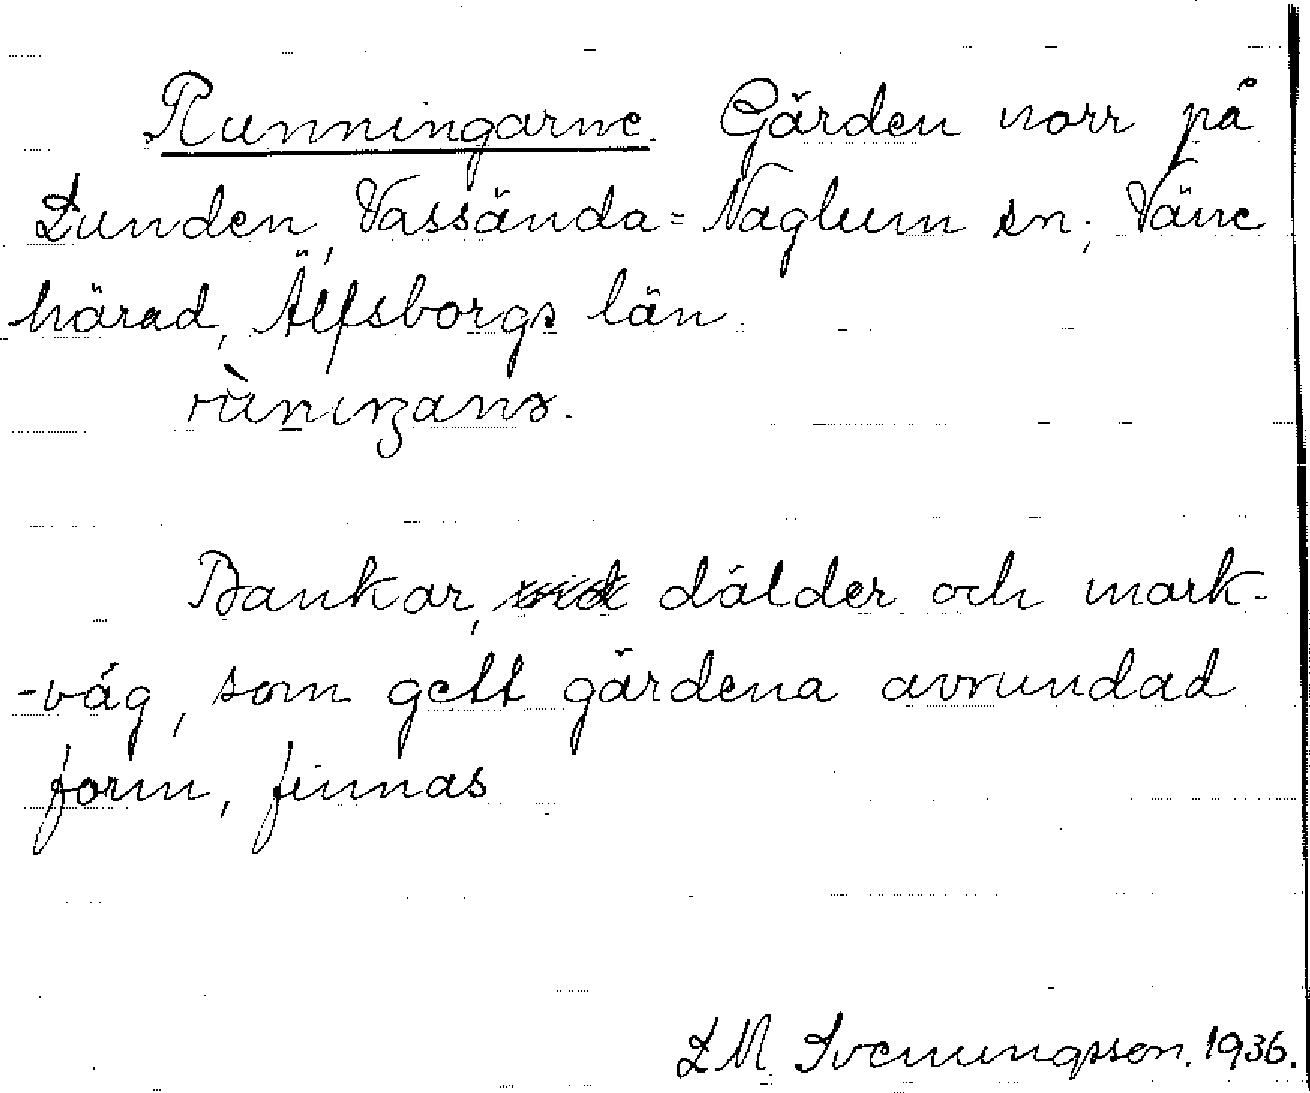 Runningarne. Gärden norr på
Lunden, Vassända=Naglum sn; Väne
härad, Älfsborgs län.
Bankar, dälder och mark-
-väg, som gett gärdena avrundad
form, finnas
L M Svenungsson. 1936.